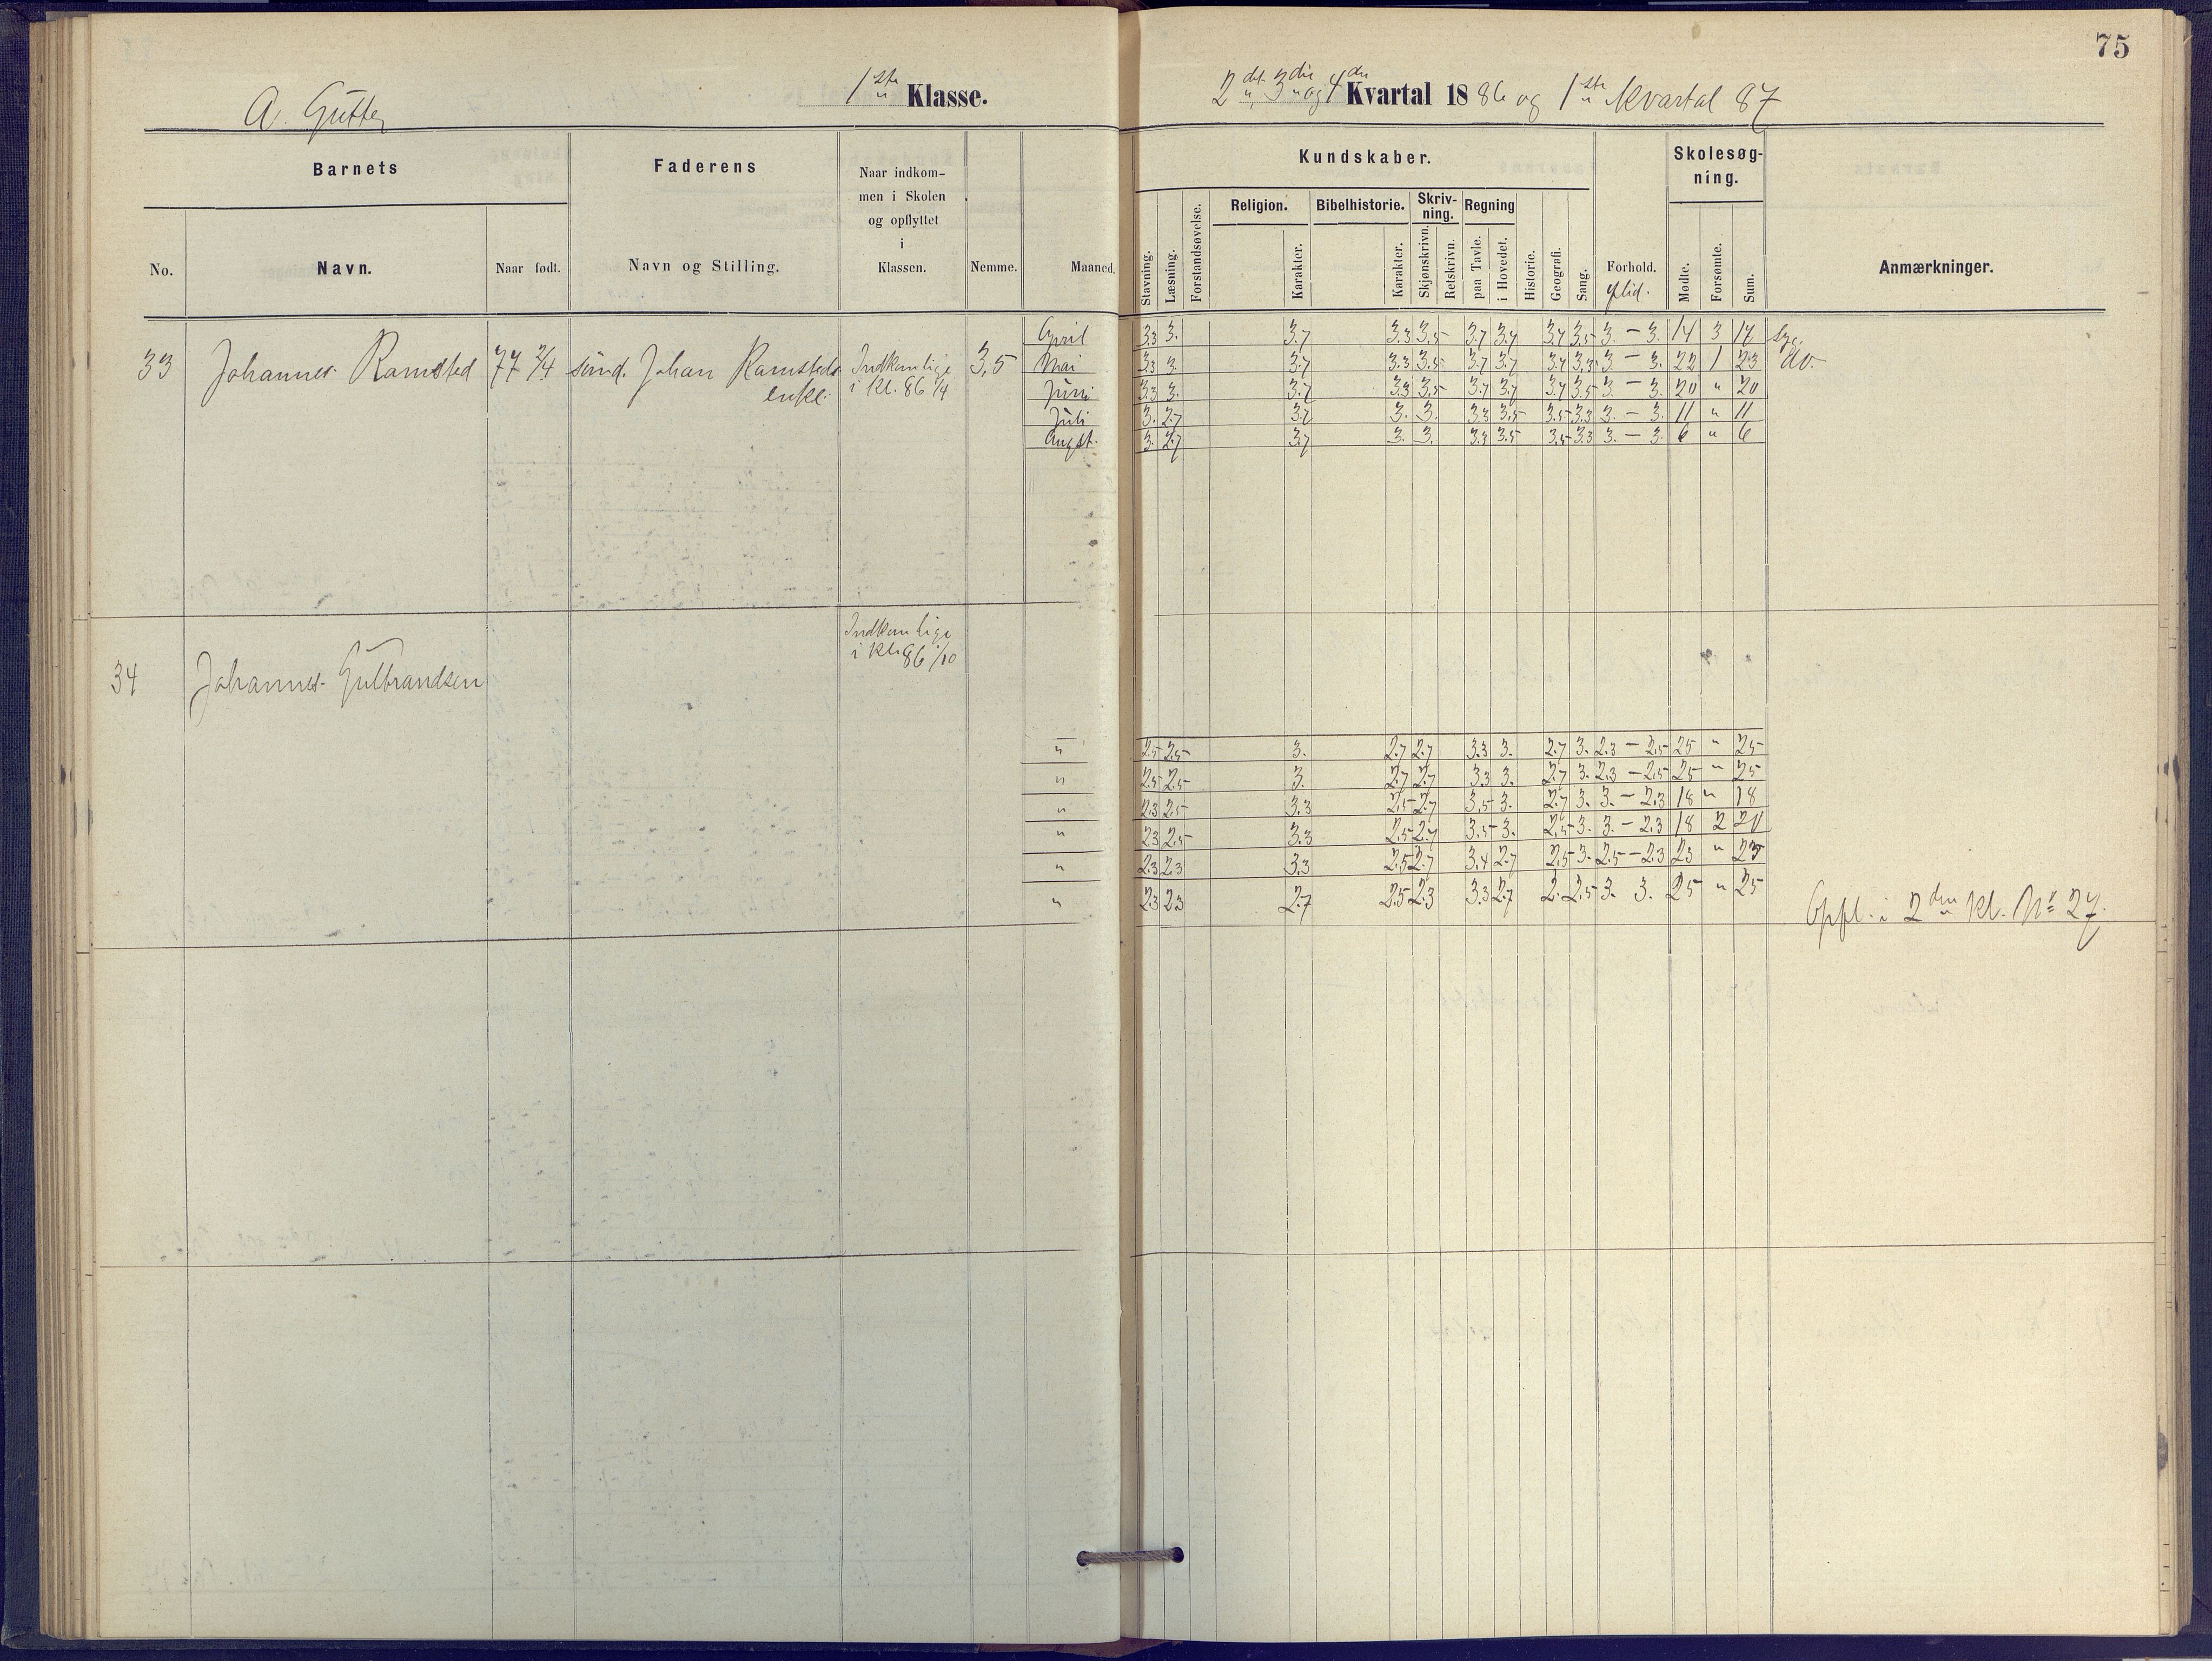 75
A. Gutter
1ste Klasse.
2det 3die og 4de Kvartal 1886 og 1ste Kvartal 87
Barnets
Faderens
Naar indkom-
men i Skolen
og opflyttet
i
Klassen.
No.
Navn.
Naar født.
Navn og Stilling.
Nemme.
Maaned.
Kundskaber.
Skolesøg-
ning.
Stavning.
Læsning.
Forstandsøvelse.
Religion.
Karakter.
Bibelhistorie.
Karakter.
Skriv-
ning.
Skjønskrivn.
Retskrivn.
Regning
paa Tavle.
i Hovedet.
Historie.
Geografi.
Sang.
Forhold.
Flid.
Mødte.
Forsømte.
Sum.
Anmærkninger.
33 Johannes Ramsted 77 2/4 Johan Ramsteds
enke
Indkom lige
i Kl. 86 1/4
3,5
April 3.3 3. 3.7 3.3 3.5 3.7 3.7 3.7 3.5 3. — 3. 14 3 17 Syg.
Mai 3.3 3. 3.7 3.3 3.5 3.7 3.7 3.7 3.3 3. — 3. 22 1 23 do.
Juni 3.3 3. 3.7 3.3 3.5 3.7 3.7 3.7 3.5 3. — 3. 20 " 20
Juli 3. 2.7 3.7 3. 3. 3.3 3.5 3.5 3.3 3. — 3. 11 " 11
Augst. 3. 2.7 3.7 3. 3. 3.3 3.5 3.5 3.3 3. — 3. 6 " 6
34 Johannes Gulbrandsen
Indkom lige
i Kl. 86 1/10
" 2.5 2.5 3. 2.7 2.7 3.3 3. 2.7 3. 2.3 — 2.5 25 " 25
" 2.5 2.5 3. 2.7 2.7 3.3 3. 2.7 3. 2.3 — 2.5 25 " 25
" 2.3 2.5 3.3 2.5 2.7 3.5 3. 2.7 3. 3. — 2.3 18 " 18
" 2.3 2.5 3.3 2.5 2.7 3.5 3. 2.5 3. 3. — 2.3 18 2 20
" 2.3 2.3 3.3 2.5 2.7 3.4 2.7 2.5 3. 2.5 — 2.3 23 " 23
" 2.3 2.3 2.7 2.5 2.3 3.3 2.7 2. 2.5 3. 3. 25 " 25
Oppl. i 2den Kl. No 27.